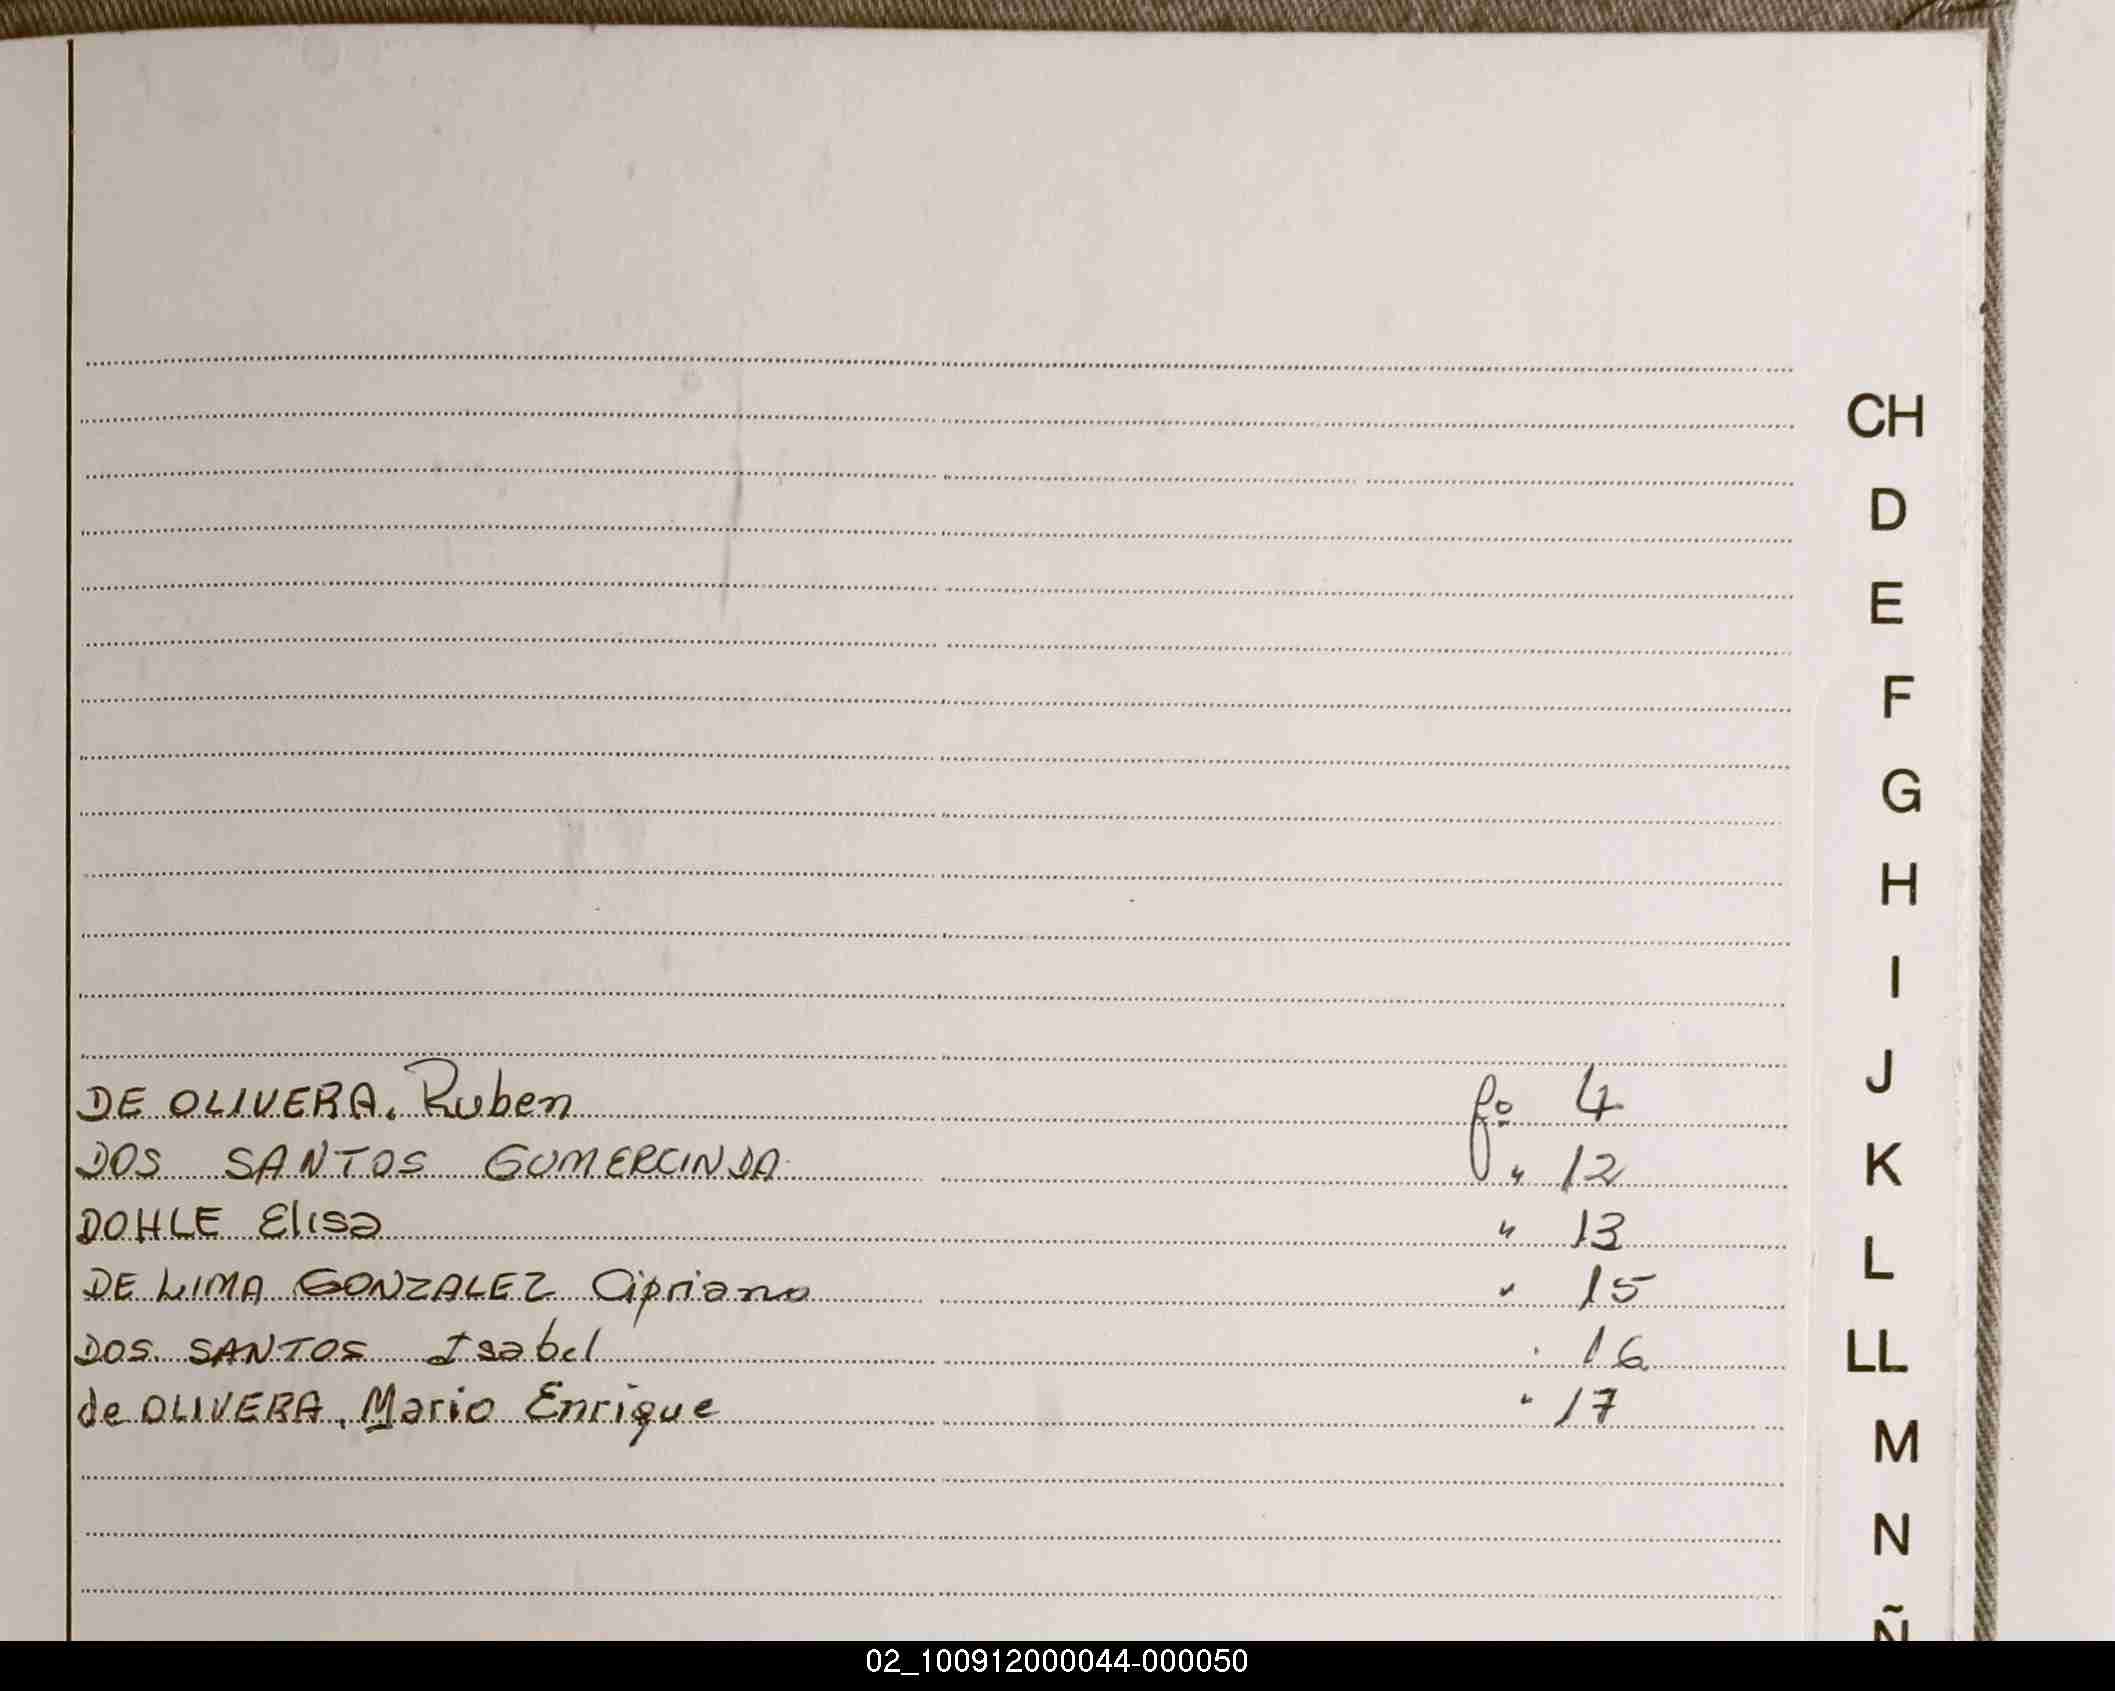 CH
D
E
F
G
H
I
J
DE OLIVERA, Ruben fº 4
K
DOS SANTOS GUMERCINDA " 12
DOHLE Elisa " 13
L
DE LIMA GONZALEZ Cipriano " 15
LL
DOS SANTOS Isabel " 16
de OLIVERA, Mario Enrique " 17
M
N
Ñ
02_100912000044-000050